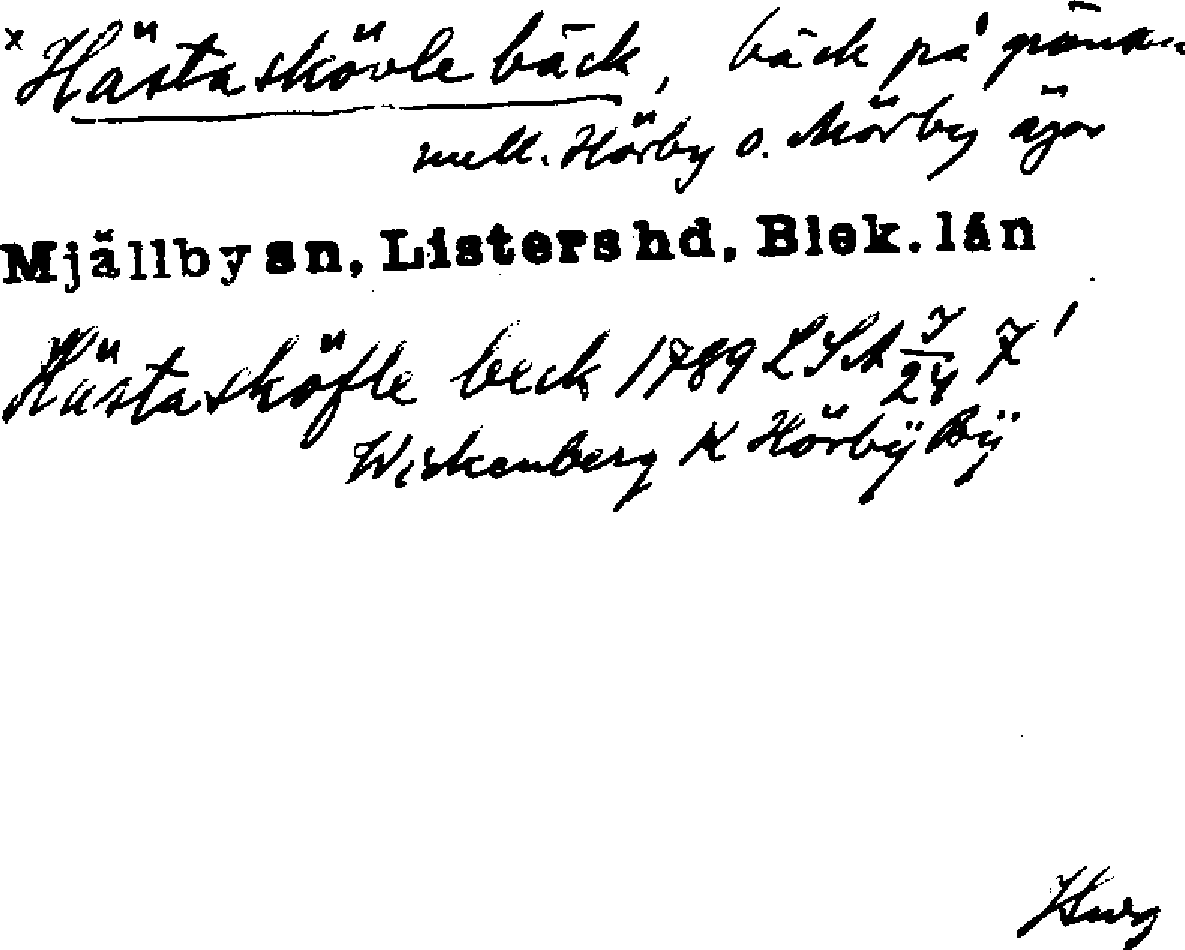 x Hästaskövle bäck, bäck på gräns
mell. Hörby o. Mörby ägor
Mjällby sn, Listers hd, Blek. län
Hästasköfle beck 1789 LSA 7'
Wiskenberg K Hörbÿ Bÿ